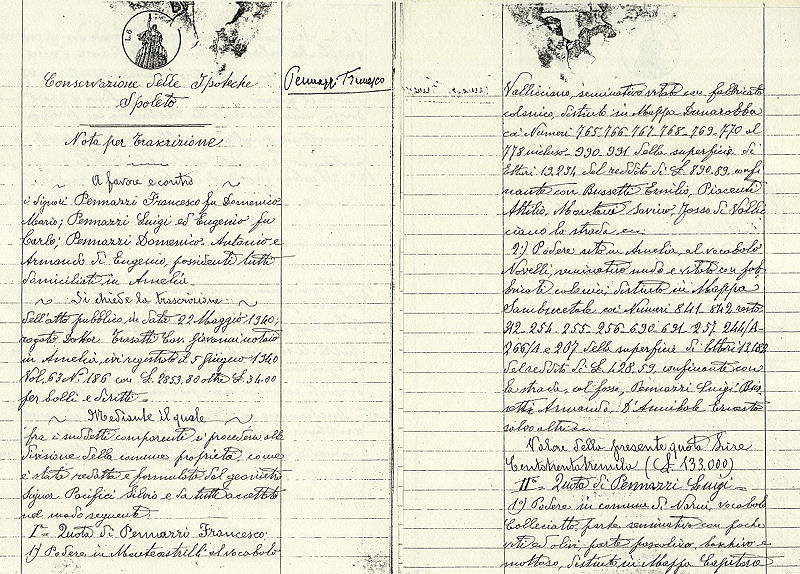 L6
Conservazione delle Ipoteche
Spoleto
Nota per Trascrizione
A favore e contro
i signori Pennazzi Francesco fu Domenico
Mario; Pennazzi Luigi ed Eugenio fu
Carlo; Pennazzi Domenico Antonio e
Armando di Eugenio, possidenti tutti
domiciliati in Amelia
Si chiede la trascrizione
dell'atto pubblico in data 22 Maggio 1940,
rogato Dottor Trasatti Cav. Giovanni notaio
in Amelia, ivi registrato il 5 Giugno 1940
Vol. 63 N. 186 con £. 2853,80 oltre £ 34.00
per bolli e diritti =
Mediante il quale
fra i suddetti comparenti si procedeva alla
divisione della comune proprietà, come
è stata redatta e formulata dal geometra
Signor Pacifici Silvio e da tutti accettata
nel modo seguente.
I° = Quota di Pennazzi Francesco:
1) Podere in Montecastrilli al vocabolo
Pennazzi Francesco
Vallicciano, seminativo vitato con fabbricato
colonico, distinto in Mappa Dunarobba
coi Numeri 765-766-767-768-769-770 al
778 incluso-990-991 della superficie di
Ettari 19.294 del reddito di £. 890.89 confi
nante con Bussetti Emilio, Piacenti
Attilio, Montani Savino, Fosso di Valli
ciano la strada ecc.
2) Podere sito in Amelia, al vocabolo
Novelli, seminativo nudo e vitato con fab
bricati colonici, distinto in Mappa
Sambucetole coi Numeri 841 842 resto
912-254-255-256-690-691-257 244/A-
266/A e 207 della superficie di Ettari 13.182
del reddito di £. 428.59, confinante con
la strada, col fosso, Pennazzi Luigi
Armando, D'Annibale Ernesto
salvo altri =
Valore della presente quota Lire
Centotrentatremila (£ 133.000)
II° = Quota di Pennazzi Luigi =
1°) Podere in comune di Narni, vocabolo
Colleciatto, parte seminativo con poche
viti ed olivi, parte pascolivo, boschivo e
distinto in Mappa Capitone